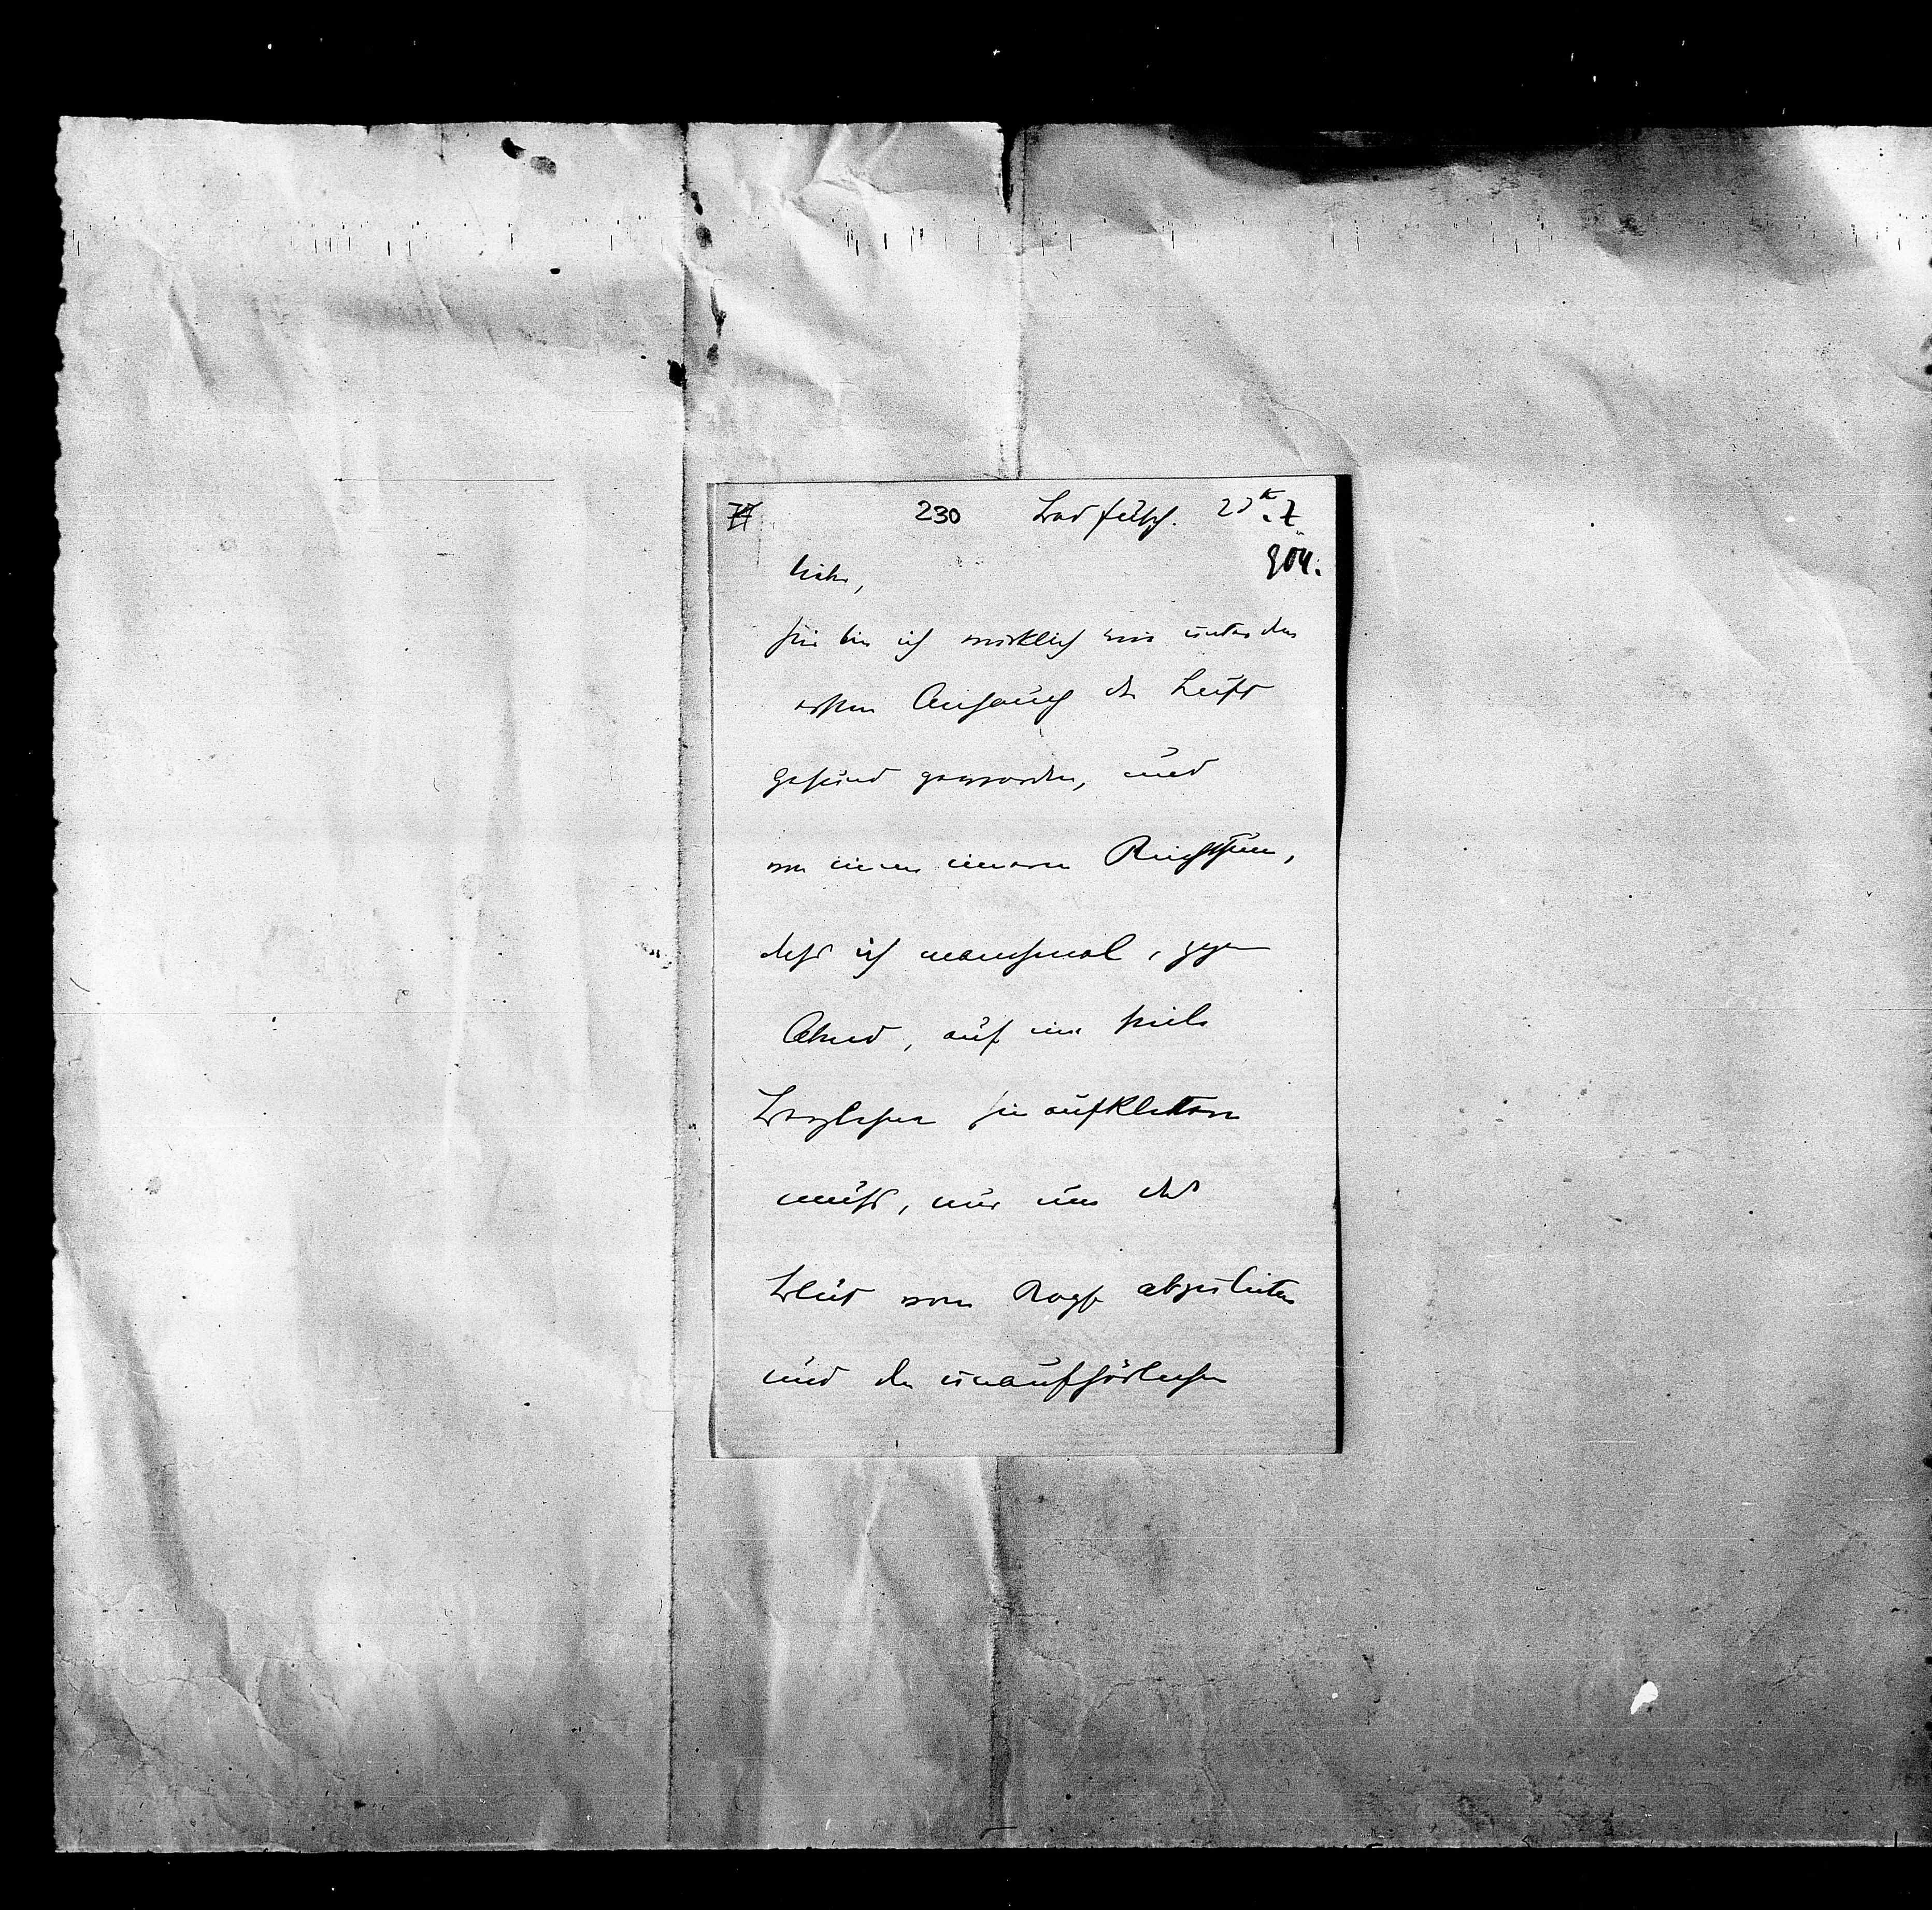 77 230 Bad Fusch. 23ten. 7.
904.
lieber,
hier bin ich wirklich wie unter dem
ersten Anhauch der Luft
gesund geworden, und
von einem inneren Reichthum,
dass ich manchmal, gegen
Abend, auf eine steile
Berglehne hinaufklettern
muss, nur um das
Blut vom Kopf abzuleiten
und den unaufhörlichen